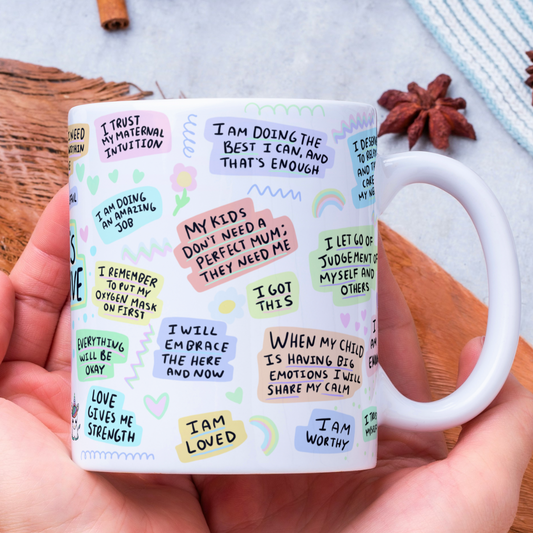 NEED
I TRUST
MY MATERNAL
INTUITION
I AM DOING THE
BEST I CAN, AND
THAT'S ENOUGH
I AM DOING
AN AMAZING
JOB
MY KIDS
DON'T NEED A
PERFECT MUM;
THEY NEED ME
I LET GO OF
JUDGEMENT OF
MYSELF AND
OTHERS
I REMEMBER
TO PUT MY
OXYGEN MASK
ON FIRST
I GOT
THIS
EVERYTHING
WILL BE
OKAY
I WILL
EMBRACE
THE HERE
AND NOW
WHEN MY CHILD
IS HAVING BIG
EMOTIONS I WILL
SHARE MY CALM
LOVE
GIVES ME
STRENGTH
I AM
LOVED
I AM
WORTHY